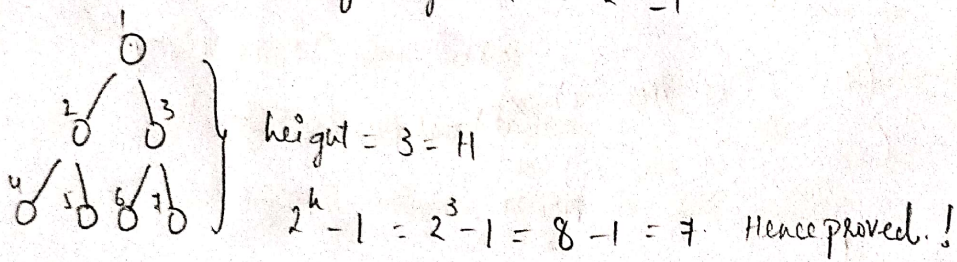 1
2 3
4 5 6 7
height = 3 = H
2^h - 1 = 2^3 - 1 = 8 - 1 = 7. Hence proved.!